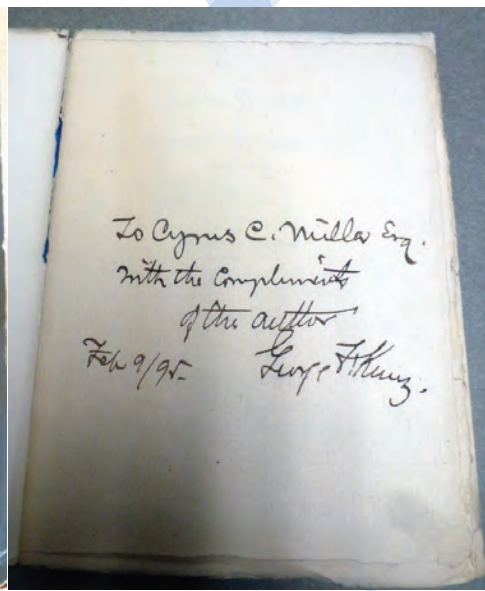 To Cyrus C. Miller Esq.
With the Compliments
of the author
Feb 9/95 George F. Kunz.